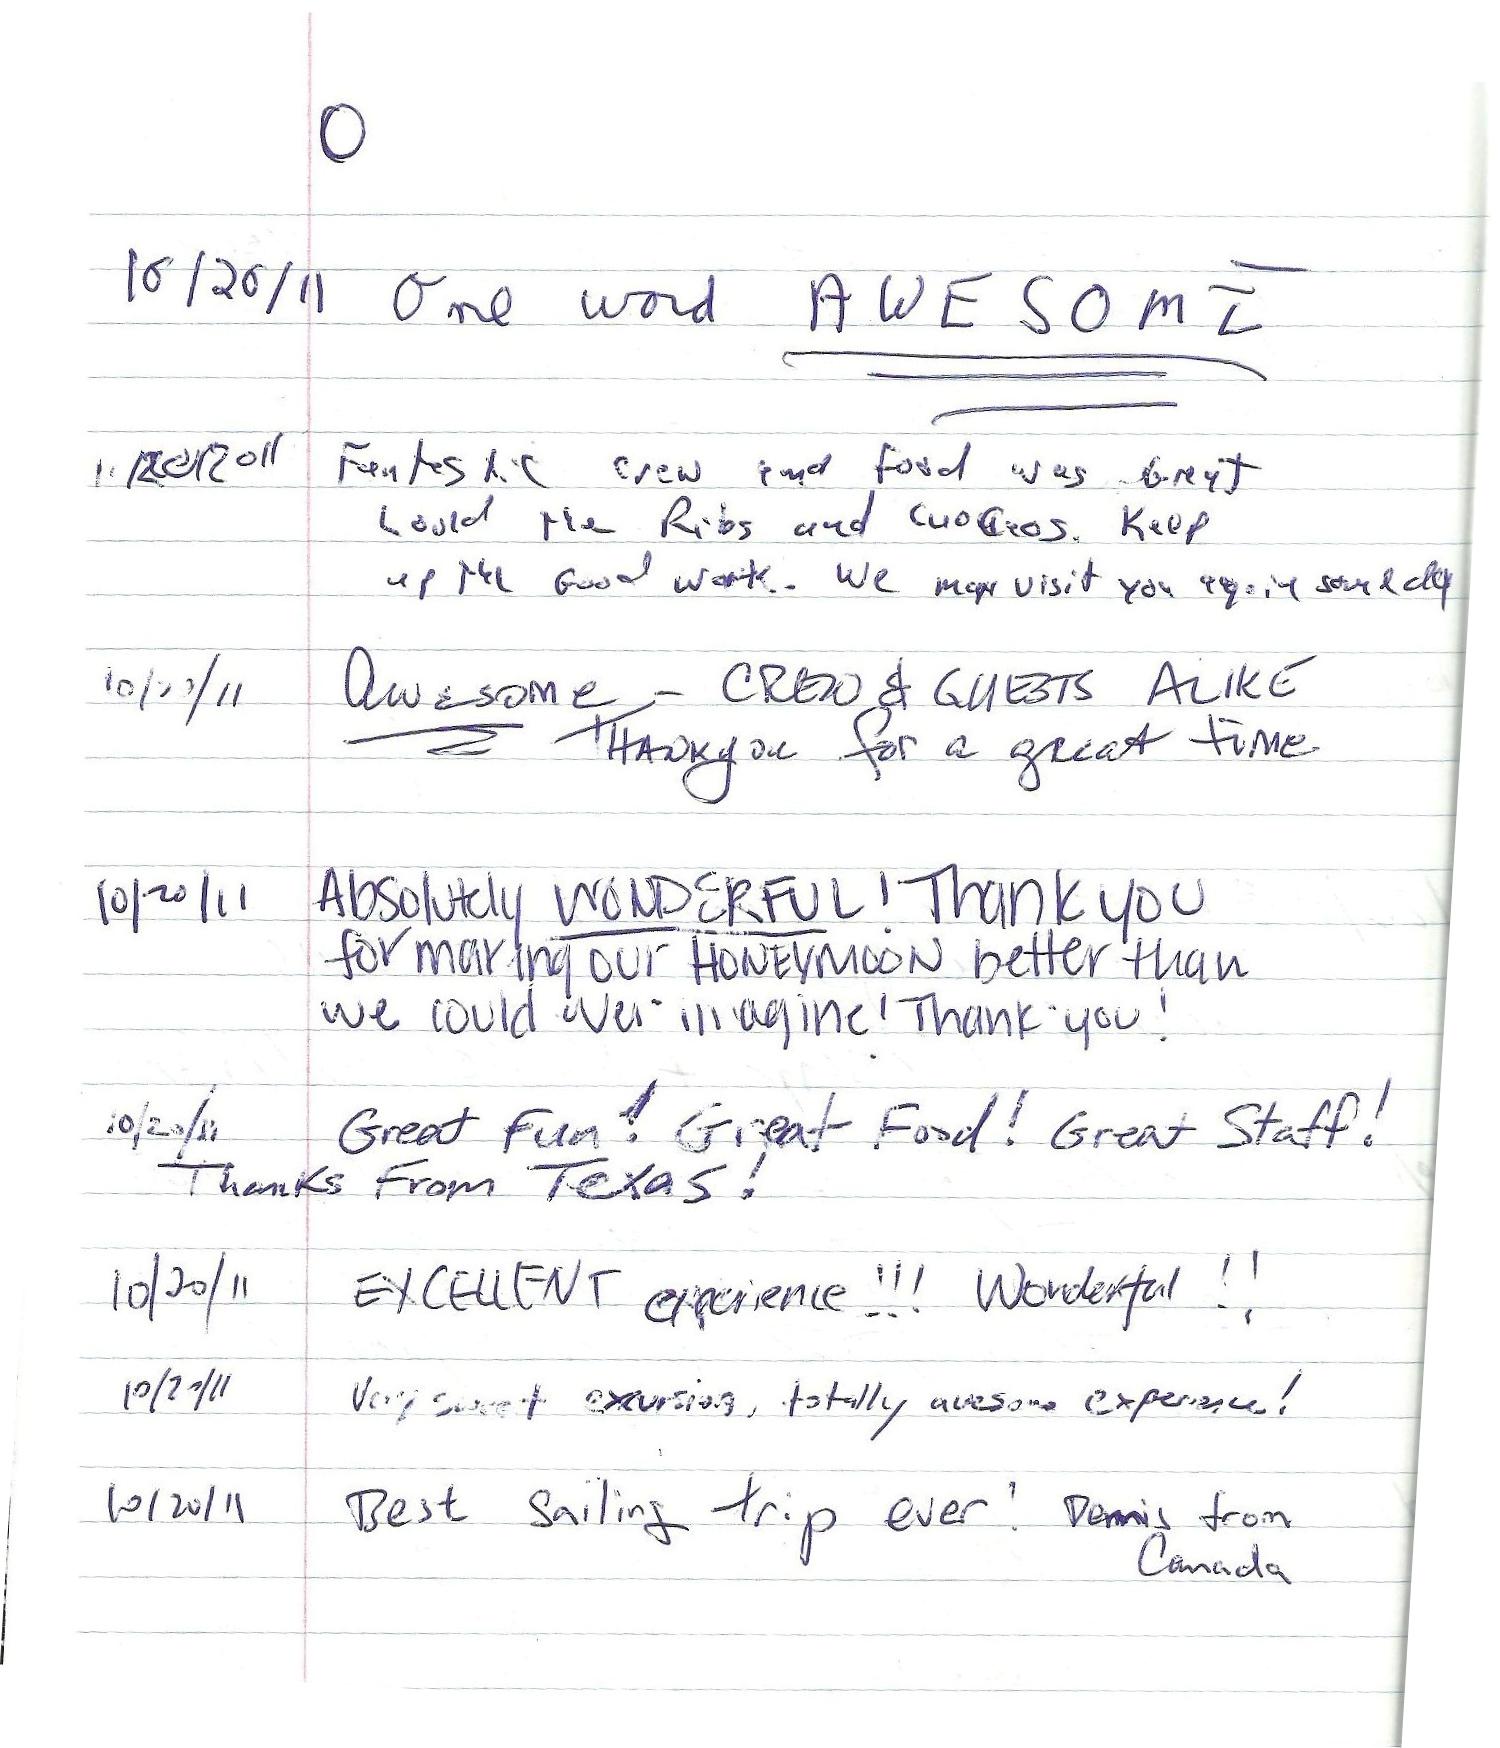 O
10/20/11 One word AWESOME
Fantastic crew and food was Great
Loved the Ribs and Keep
up the Good work. We may visit you again
10/20/11 Awesome - CREW & GUESTS ALIKE
THANKyou for a great time
10/20/11 Absolutely WONDERFUL! Thank you
for making our HONEYMOON better than
we could ever imagine! Thank you!
10/20/11 Great Fun! Great Food! Great Staff!
Thanks From Texas!
10/20/11 EXCELLENT experience!!! Wonderful!!
10/20/11 Very sweet excursion, totally awesome experience!
10/20/11 Best Sailing trip ever! Dennis from
Canada